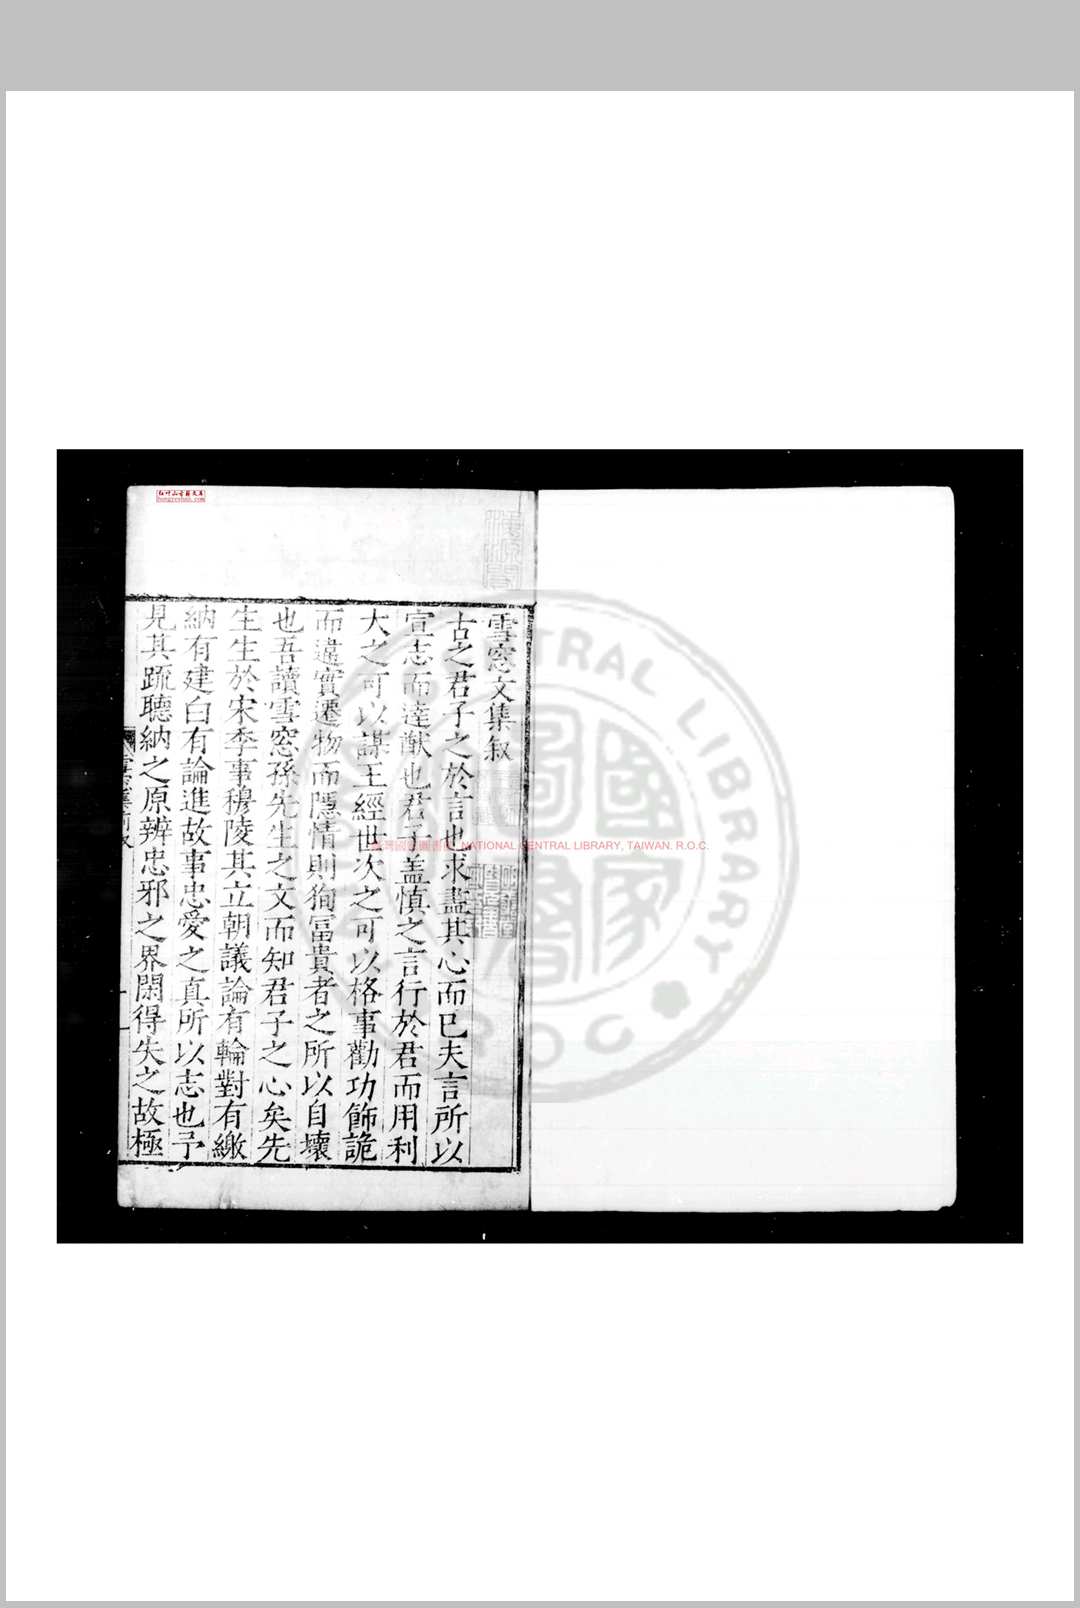 雪窓文集叙
古之君子之於言也求盡其心而已夫言所以
宣志而達猷也君子盖慎之言行於君而用利
大之可以謀王經世次之可以格事勸功飾詭
而違實遷物而隱情則狥冨貴者之所以自壞
也吾讀雪窓孫先生之文而知君子之心矣先
生生於宋季事穆陵其立朝議論有輪對有繳
納有建白有論進故事忠愛之真所以志也予
見其䟽聽納之原辨忠邪之界閑得失之故極
NATIONAL CENTRAL LIBRARY, TAIWAN. R.O.C.